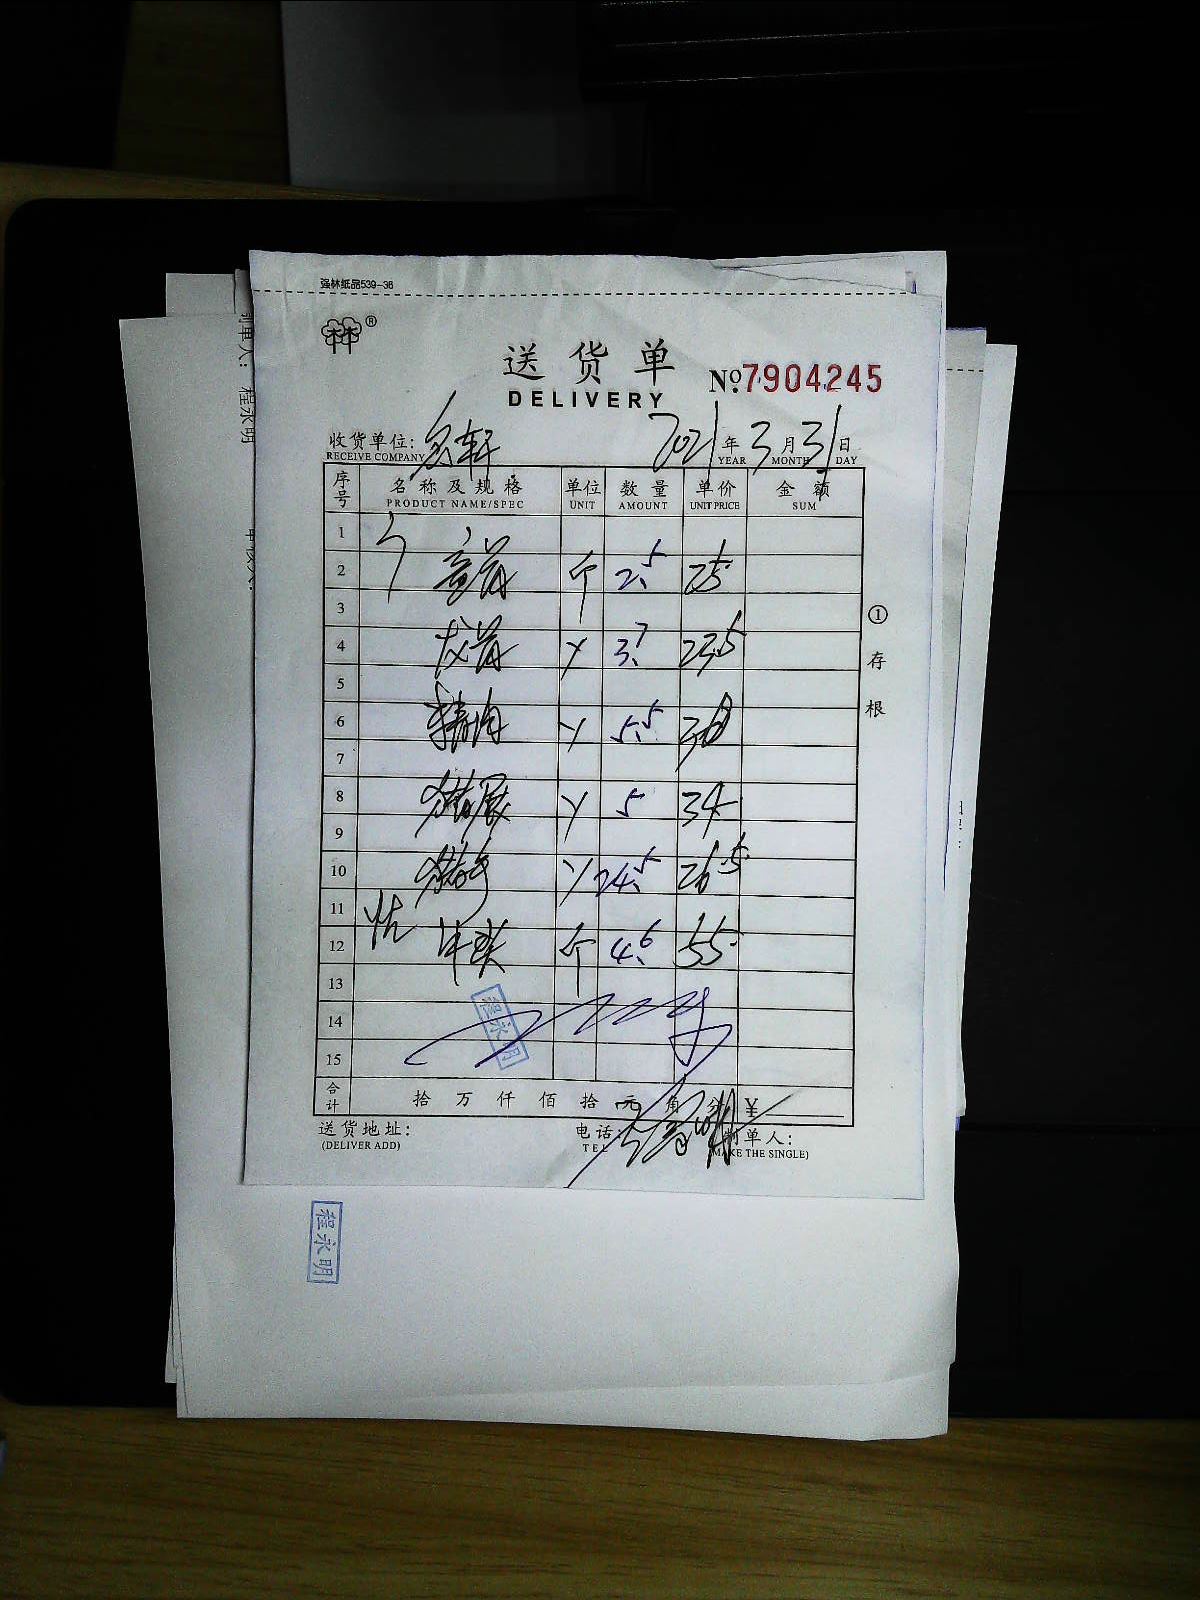 强林纸品539-36
®
送货单
DELIVERY
No.7904245
收货单位:
RECEIVE COMPANY
2021年3月31日
YEAR MONTH DAY
序号 名称及规格 单位 数量 单价 金额
PRODUCT NAME/SPEC UNIT AMOUNT UNIT PRICE SUM
1
2 个 2.5 25
3
4 龙骨 丫 3.7 23.5
5
6 精肉 丫 5.5
7
8 猪展 丫 5 34
9
10 猪手 丫 24.5 26.5
11
12 个 4.6 55
13
14
15
程永明
合计 拾万仟佰拾元角分 ¥
送货地址:
(DELIVER ADD)
电话:
TEL
制单人:
(MAKE THE SINGLE)
①存根
制单人: 程永明
程永明